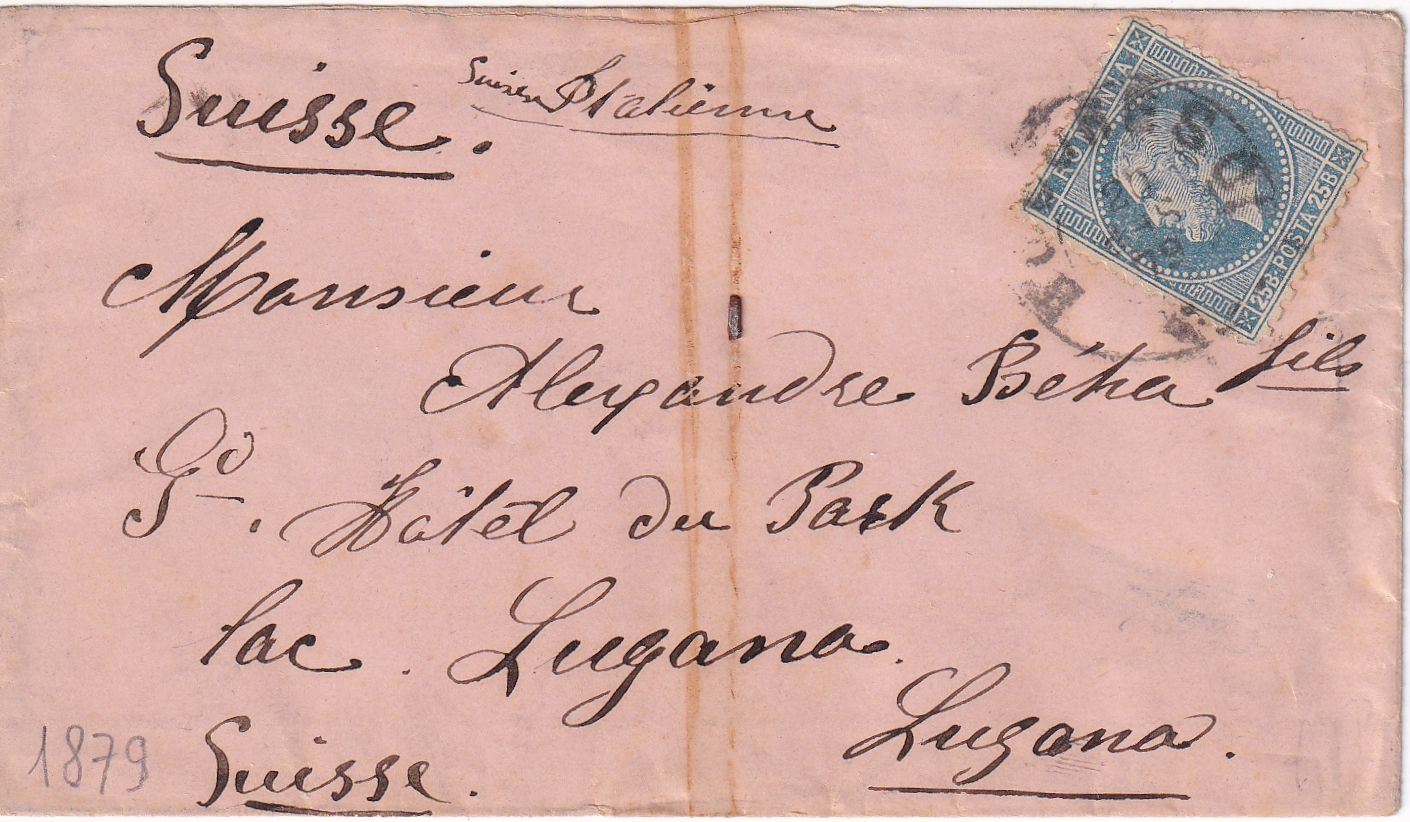 Suisse.
Suisse Italienne
ROMANIA
25B. POSTA 25B
Monsieur
Alexandre Béha fils
Gd. Hôtel du Park
lac. Lugano.
Lugano.
1879
Suisse.